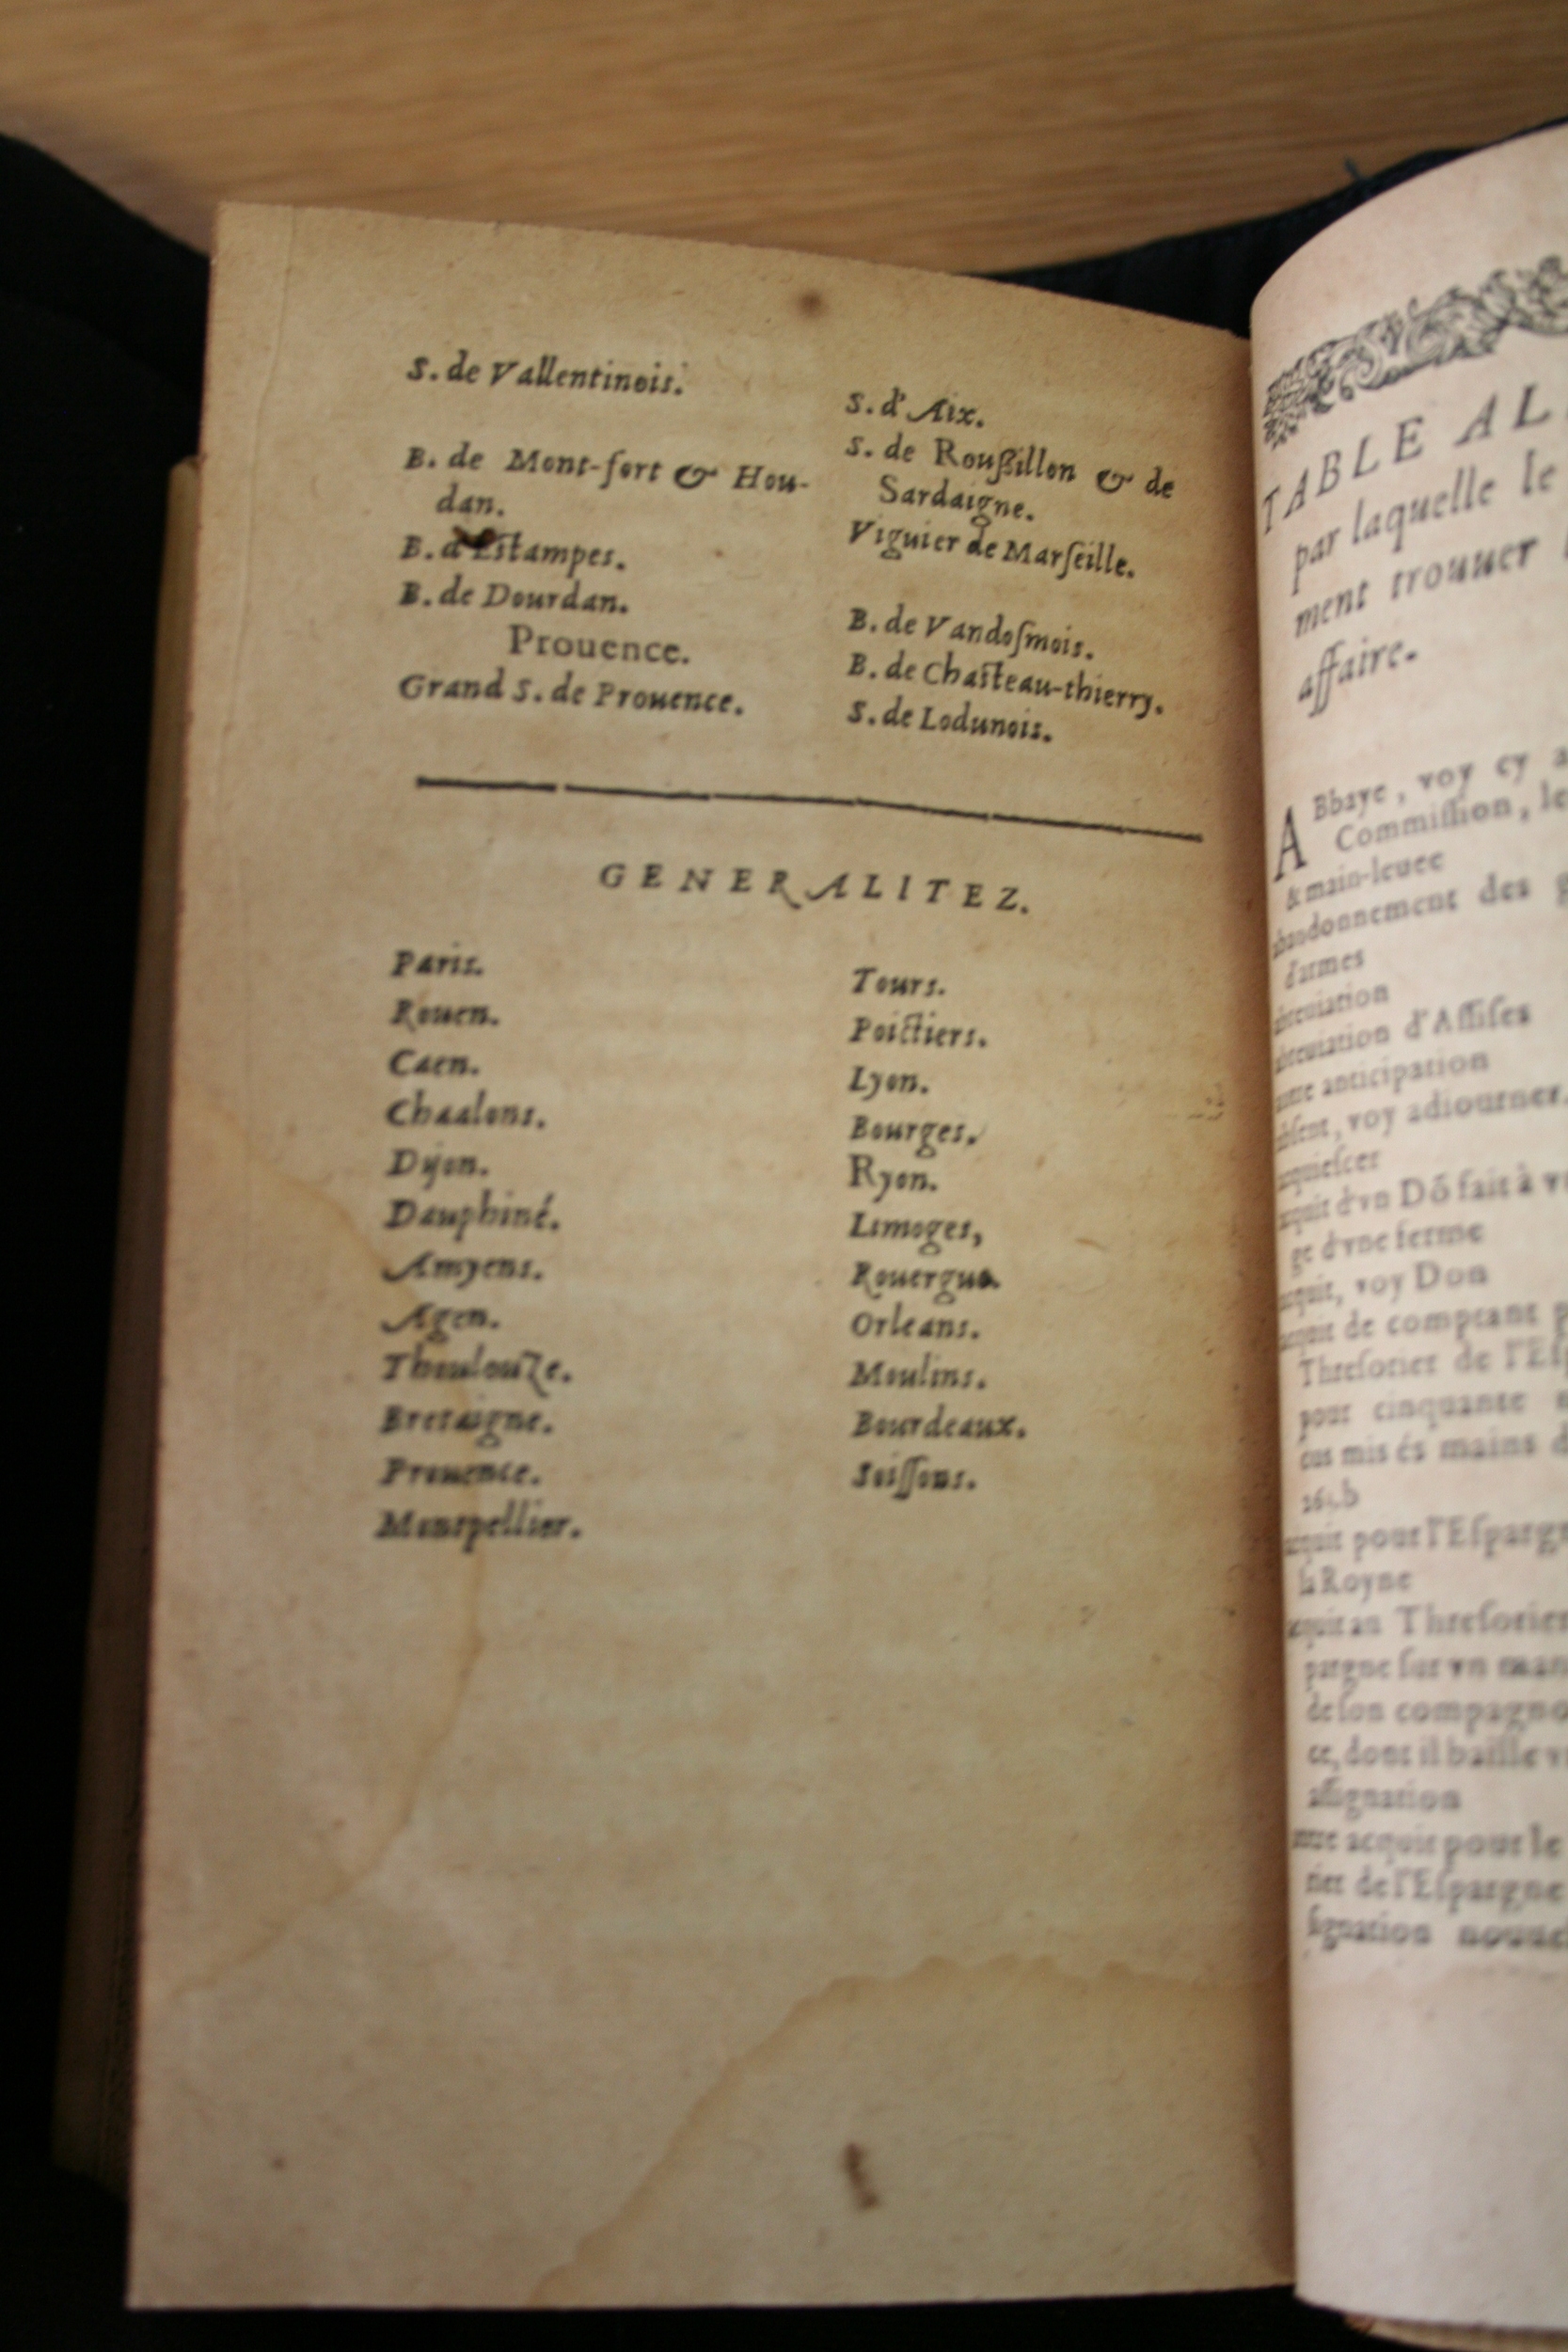 S. de Vallentinois.
B. de Mont-fort & Hou-
dan.
B. d'Estampes.
B. de Dourdan.
Prouence.
Grand S. de Prouence.
S. d'Aix.
S. de Rouſsillon & de
Sardaigne.
Viguier de Marſeille.
B. de Vandoſmois.
B. de Chasteau-thierry.
S. de Lodunois.
GENERALITEZ.
Paris.
Rouen.
Caen.
Chaalons.
Dijon.
Dauphiné.
Amyens.
Agen.
Thoulouze.
Bretaigne.
Prouence.
Montpellier.
Tours.
Poictiers.
Lyon.
Bourges.
Ryon.
Limoges,
Rouergue.
Orleans.
Moulins.
Bourdeaux.
Soiſſons.
TABLE AL
par laquelle le
ment trouuer
affaire.
ABbaye, voy cy a
Commiſſion, le
& main-leuee
abandonnement des g
d'armes
abreuiation
abreuiation d'Aſſiſes
autre anticipation
abſent, voy adiourner.
acquieſcer
acquit d'vn Dõ fait à v
ge d'vne ferme
acquit, voy Don
acquit de comptant p
Threſorier de l'Eſ
pour cinquante
cus mis és mains d
261.b
acquit pour l'Eſparg
la Royne
acquit au Threſorier
pargne ſur vn man
de ſon compagno
ce, dont il baille v
aſſignation
autre acquit pour le
rier de l'Eſpargne
ſignation nouuel